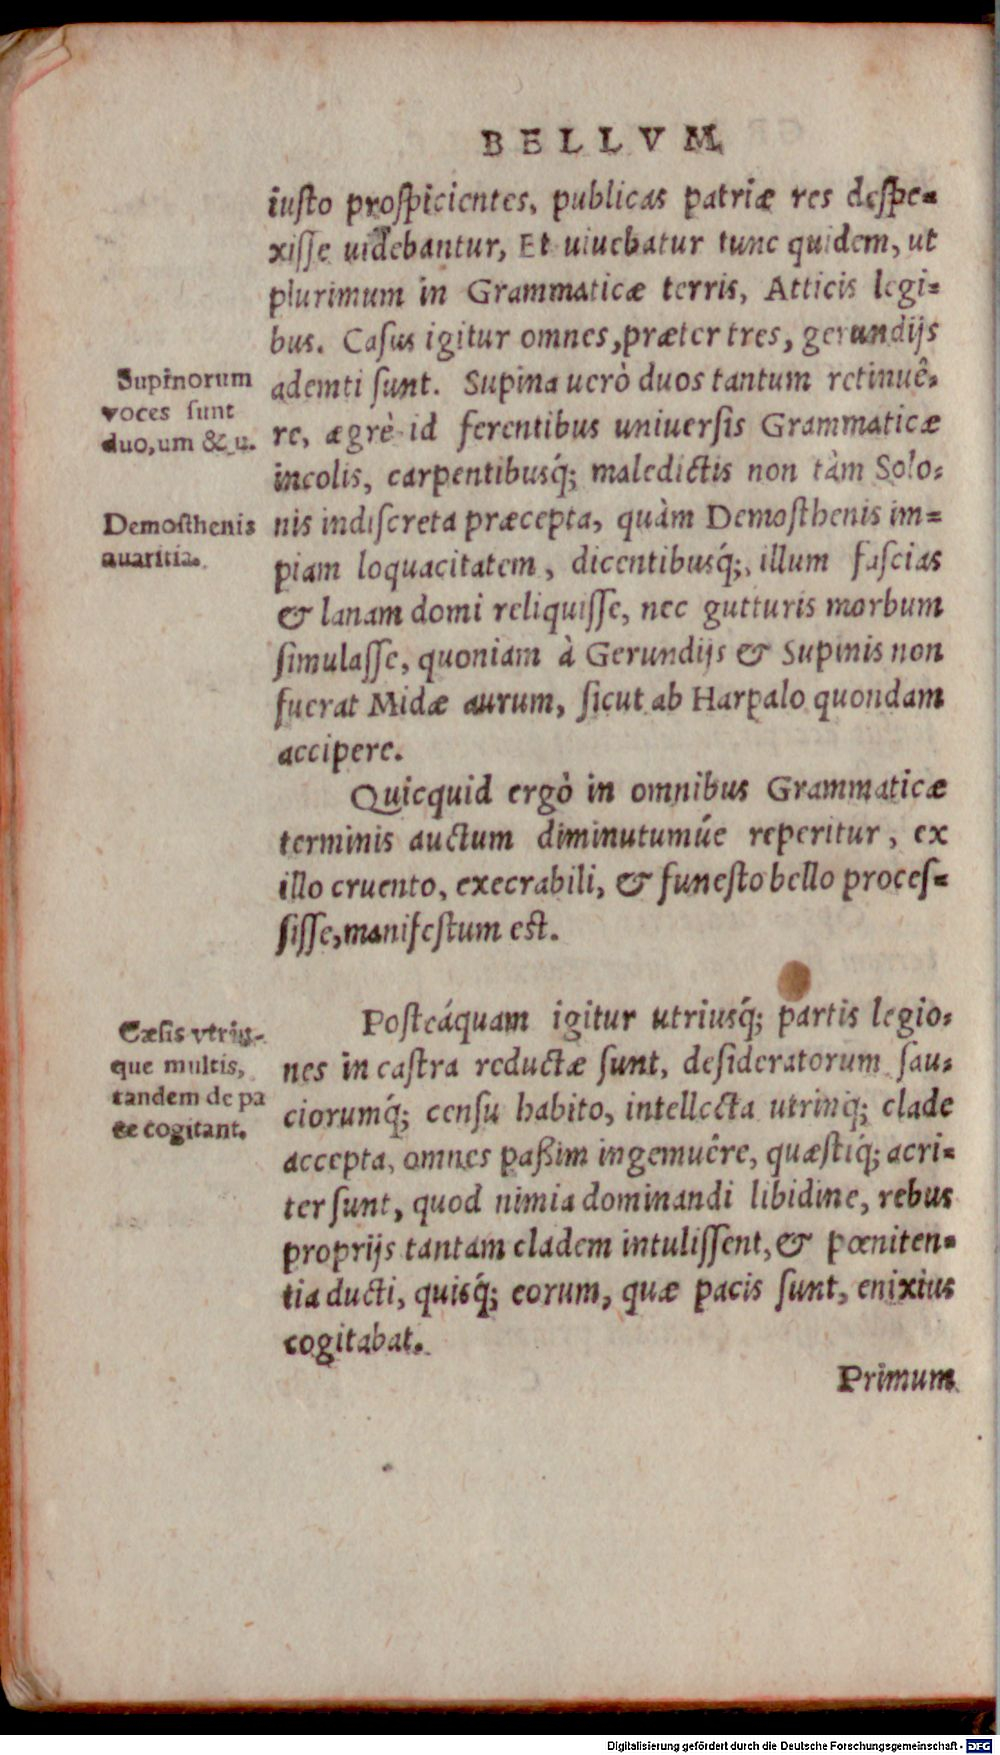 BELLVM
iusto prospicientes, publicas patriæ res despe-
xisse uidebantur, Et uiuebatur tunc quidem, ut
plurimum in Grammaticæ terris, Atticis legi-
bus. Casus igitur omnes, præter tres, gerundijs
ademti sunt. Supina uerò duos tantum retinuê-
re, ægrè id ferentibus uniuersis Grammaticæ
incolis, carpentibusq́; maledictis non tàm Solo-
nis indiscreta præcepta, quàm Demosthenis im-
piam loquacitatem, dicentibusq́;, illum fascias
& lanam domi reliquisse, nec gutturis morbum
simulasse, quoniam à Gerundijs & Supinis non
fuerat Midæ aurum, sicut ab Harpalo quondam
accipere.
Supinorum
voces sunt
duo, um & u.
Demosthenis
auaritia.
Quicquid ergò in omnibus Grammaticæ
terminis auctum diminutumúe reperitur, ex
illo cruento, execrabili, & funesto bello proces-
sisse, manifestum est.
Posteáquam igitur utriusq́; partis legio-
nes in castra reductæ sunt, desideratorum sau-
ciorumq́; censu habito, intellecta utrinq́; clade
accepta, omnes paßim ingemuêre, quæstiq́; acri-
ter sunt, quod nimia dominandi libidine, rebus
proprijs tantam cladem intulissent, & pœniten-
tia ducti, quisq́; eorum, quæ pacis sunt, enixius
cogitabat.
Cæsis vtrin-
que multis,
tandem de pa
ce cogitant.
Primum
Digitalisierung gefördert durch die Deutsche Forschungsgemeinschaft - DFG